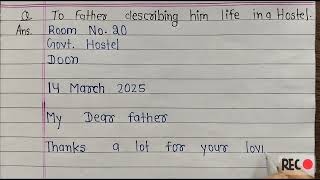 Q. To Father describing him life in a Hostel.
Ans. Room No. 20
Govt. Hostel
Doon
14 March 2025
My Dear father
Thanks a lot for your lovi
REC